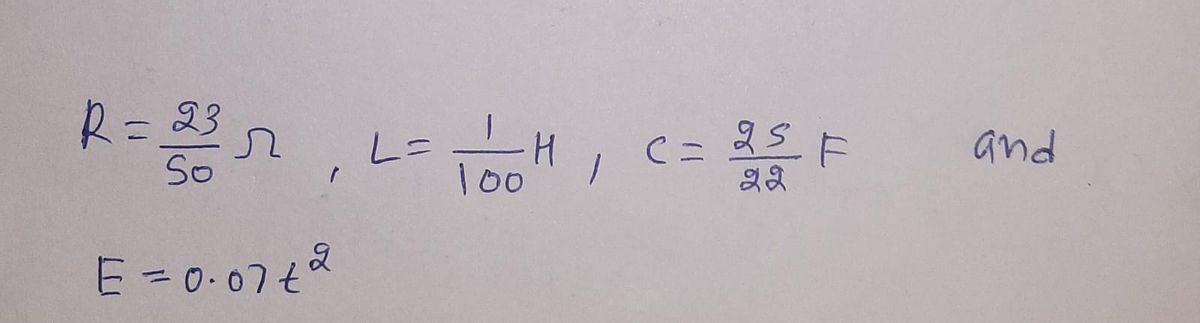 R = 23/50 Ω , L = 1/100 H , C = 25/22 F and
E = 0.07t²